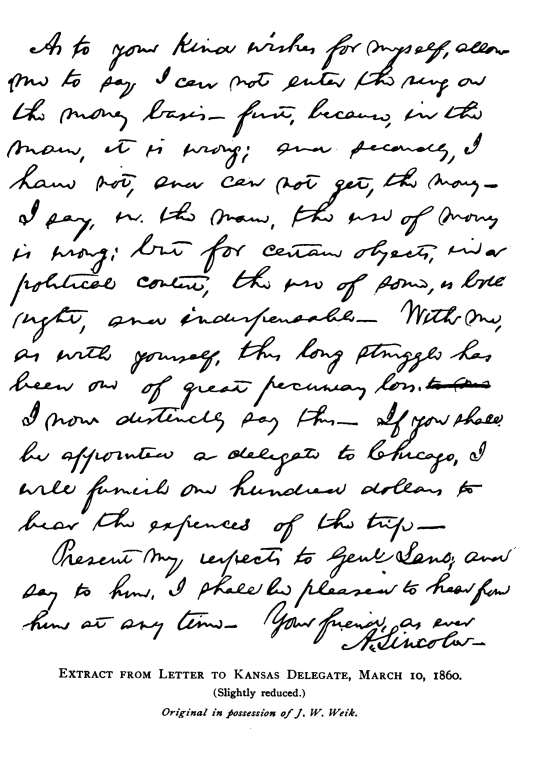 As to your kind wishes for myself, allow
me to say I can not enter the ring on
the money basis — first, because, in the
main, it is wrong; and secondly, I
have not, and can not get, the money —
I say, in the main, the use of money
is wrong; but for certain objects, in a
political contest, the use of some, is both
right, and indispensable — With me,
as with yourself, this long struggle has
been one of great pecuniary loss.
I now distinctly say this — If you shall
be appointed a delegate to Chicago, I
will furnish one hundred dollars to
bear the expences of the trip —
Present my respects to Genl. Lane; and
say to him, I shall be pleased to hear from
him at any time — Your friend, as ever
A. Lincoln —
EXTRACT FROM LETTER TO KANSAS DELEGATE, MARCH 10, 1860.
(Slightly reduced.)
Original in possession of J. W. Weik.